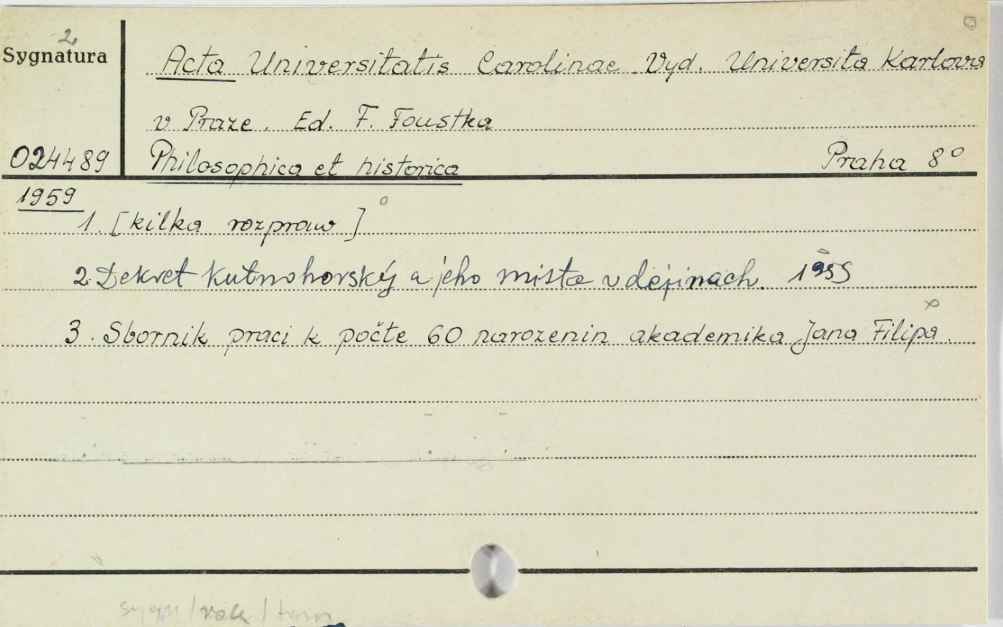 2
Sygnatura
Acta Universitatis Carolinae. Vyd. Universita Karlova
v Praze. Ed. F. Foustka
024489 Philosophica et historica Praha 8°
1959
1. [kilka rozpraw]
2. Dekret kutnohorský a jeho místo v dějinach. 1959
3. Sbornik praci k počte 60 narozenin akademika Jana Filipa.
sygn/rok/tom